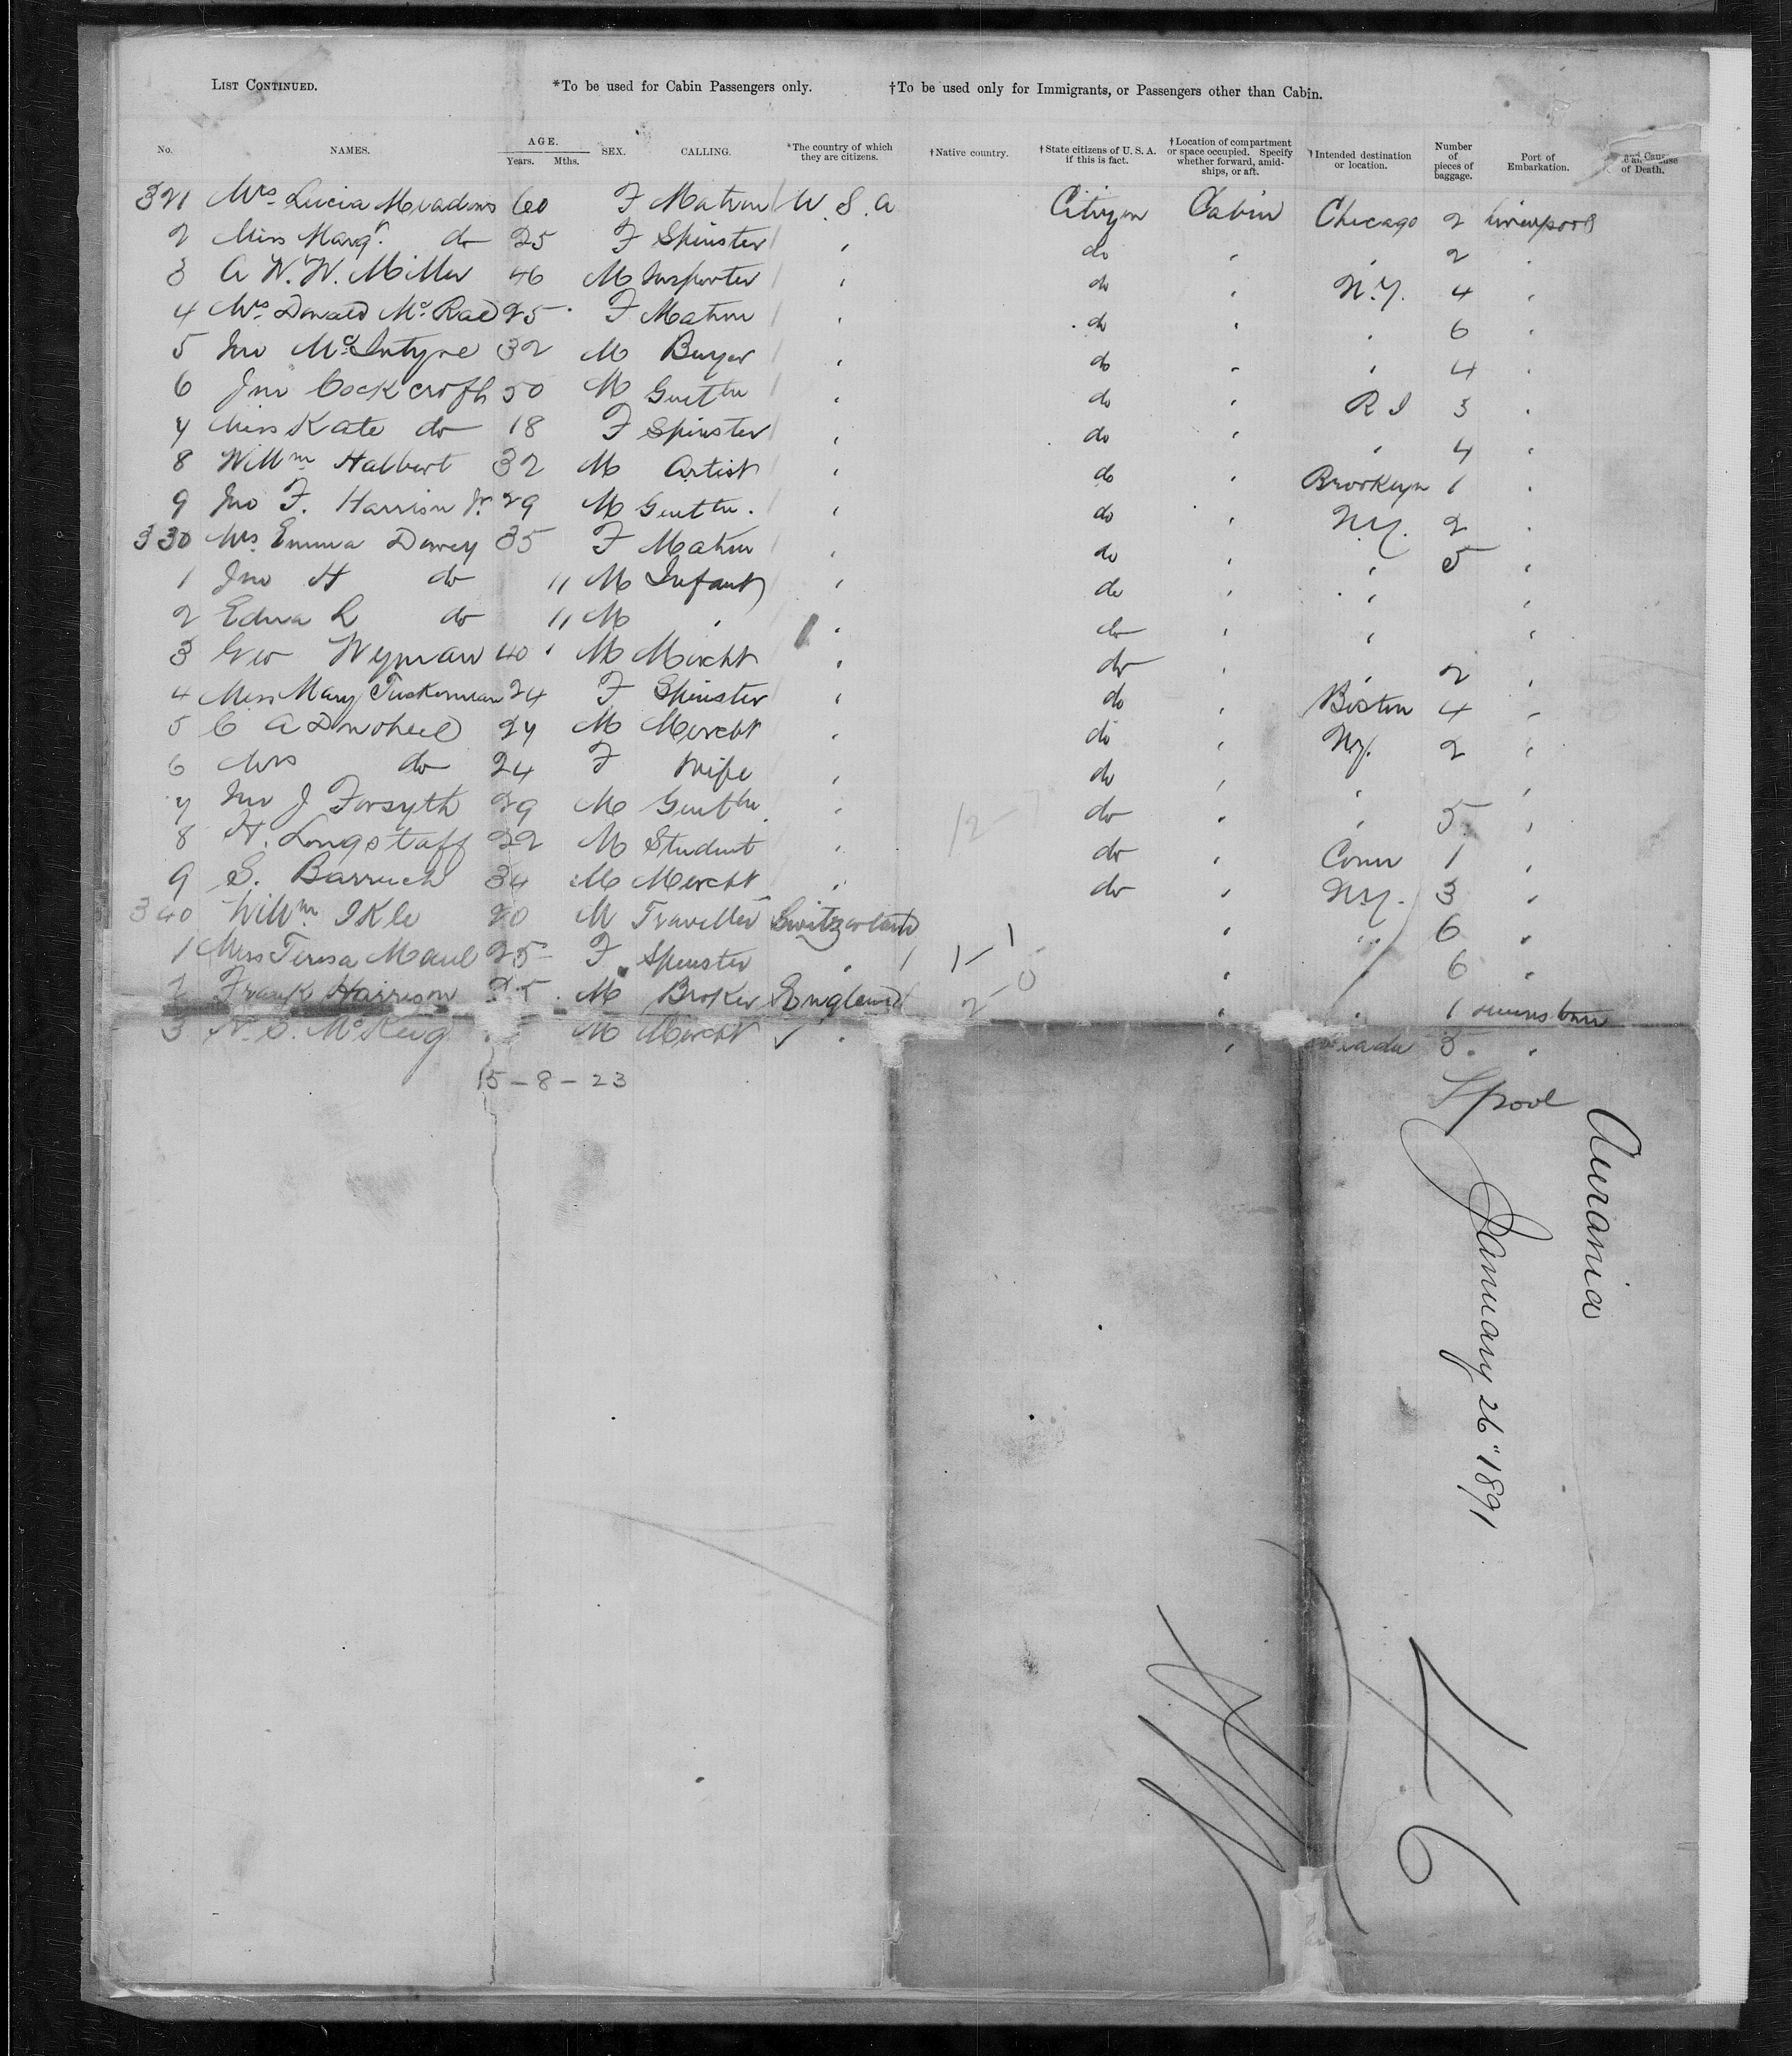 LIST CONTINUED. *To be used for Cabin Passengers only. †To be used only for Immigrants, or Passengers other than Cabin.
No. NAMES. AGE. Years. Mths. SEX. CALLING. *The country of which they are citizens. †Native country. †State citizens of U. S. A. if this is fact. †Location of compartment or space occupied. Specify whether forward, amidships, or aft. †Intended destination or location. Number of pieces of baggage. Port of Embarkation. and Cause of Death.
321 Mrs Lucia Meadows 60 F Matron U.S.A Citizen Cabin Chicago 2 Liverpool
2 Miss Margt. do 25 F Spinster " do " " 2 "
3 A W. W. Miller 46 M Importer " do " N.Y. 4 "
4 Mrs Donald McRae 25 F Matron " do " " 6 "
5 Jno McIntyre 32 M Buyer " do " " 4 "
6 Jno Cockcroft 50 M Gentln " do " R I 3 "
7 Miss Kate do 18 F Spinster " do " " 4 "
8 Willm Halbert 32 M Artist " do " Brooklyn 1 "
9 Jno F. Harrison Jr. 29 M Gentln. " do " N.Y. 2 "
330 Mrs Emma Dewey 35 F Matron " do " " 5 "
1 Jno H do 11 M Infant " do " " "
2 Edwa R do 11 M " " do " " "
3 Geo Wyman 40 M Mercht " do " " 2 "
4 Miss Mary Tuckerman 24 F Spinster " do " Boston 4 "
5 C A 27 M Mercht " do " N.Y. 2 "
6 Mrs do 24 F Wife " do " " "
7 Jno J Forsyth 29 M Gentln. " 12 do " " 5 "
8 H. Longstaff 22 M Student " do " Conn 1 "
9 S. Barruch 34 M Mercht " do " N.Y. 3 "
340 Willm Ikle 20 M Traveller Switzerland " " 6 "
1 Miss Teresa Maul 25 F Spinster " 1 1 - 1 " 6 "
2 Frank Harrison 25 M Broker England 2 - 0 " " 1 Queenstown
3 M Mercht ✓ " " 3 "
15 - 8 - 23
Lpool
Aurania
January 26" 1891